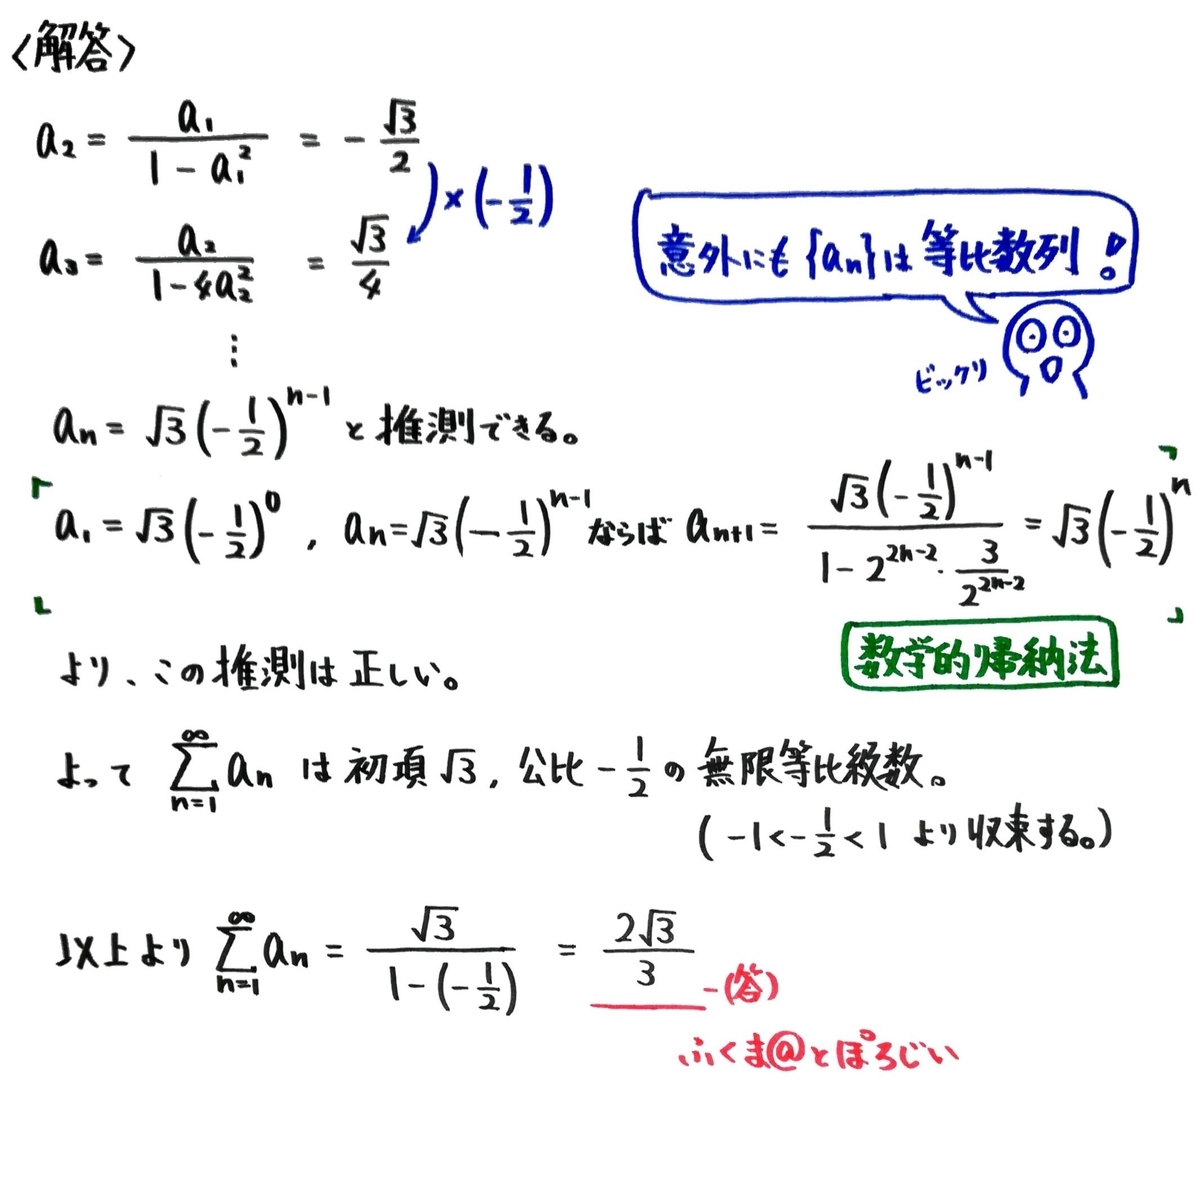 〈解答〉
a₂ = a₁/(1 - a₁²) = -√3/2
×(-1/2)
a₃ = a₂/(1-4a₂²) = √3/4
意外にも{aₙ}は等比数列!
ビックリ
⋮
aₙ = √3(-1/2)ⁿ⁻¹ と推測できる。
「a₁ = √3(-1/2)⁰, aₙ=√3(-1/2)ⁿ⁻¹ ならば aₙ₊₁ = √3(-1/2)ⁿ⁻¹/(1-2²ⁿ⁻²・3/2²ⁿ⁻²) = √3(-1/2)ⁿ」
数学的帰納法
より、この推測は正しい。
よって ∑[n=1→∞] aₙ は初項√3, 公比-1/2の無限等比級数。
(-1<-1/2<1 より収束する。)
以上より ∑[n=1→∞] aₙ = √3/(1-(-1/2)) = 2√3/3 -(答)
ふくま@とぽろじい